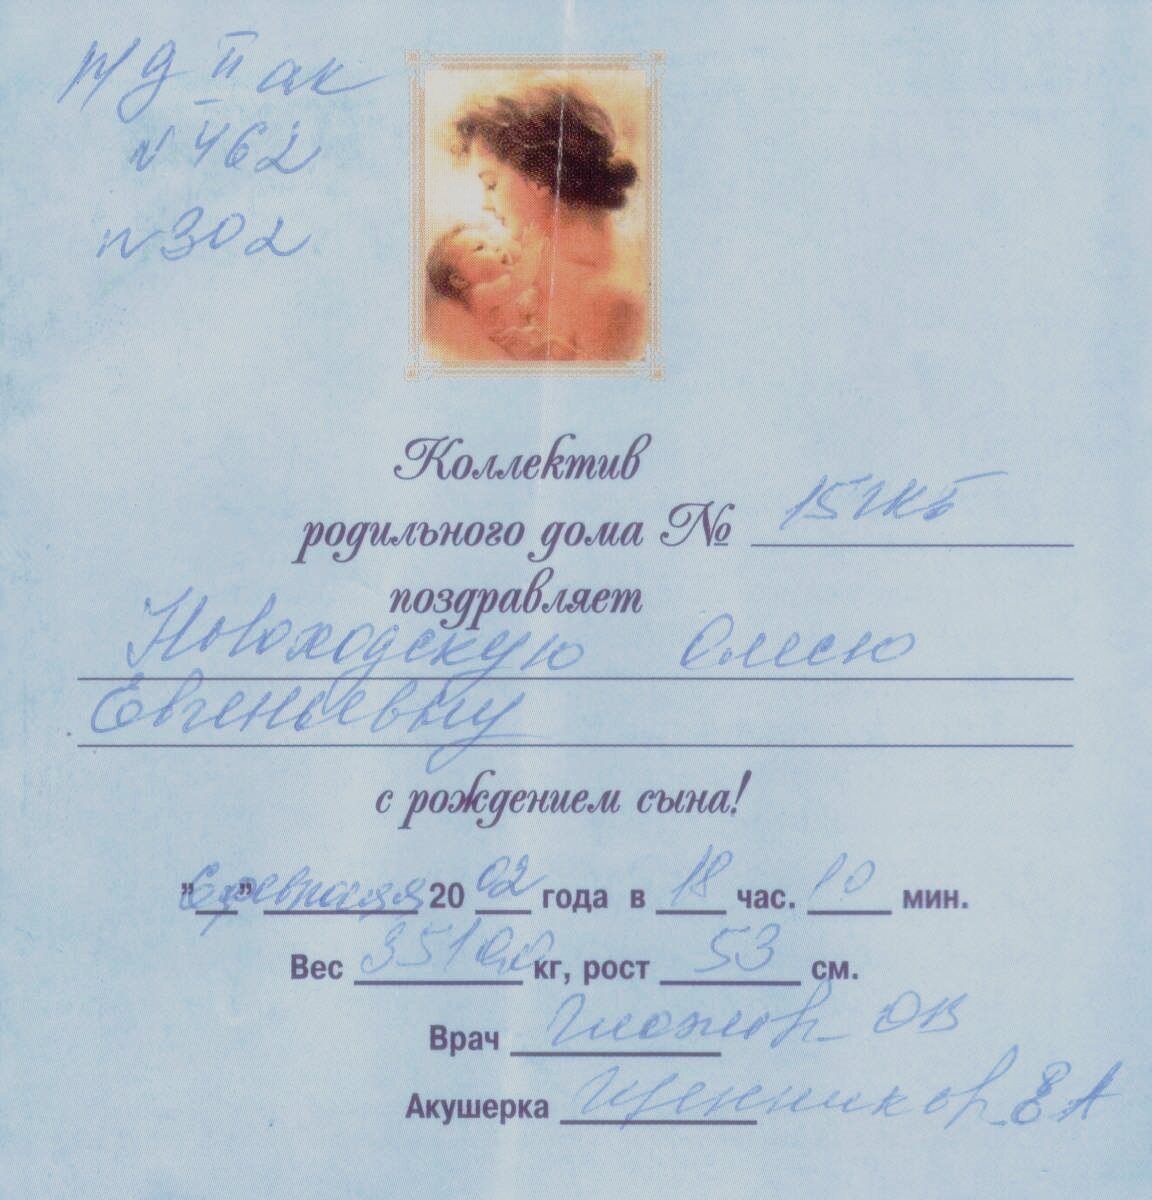 II ак
N 462
п 302
Коллектив
родильного дома № 15 ГКБ
поздравляет
Новоходскую Олесю
Евгеньевну
с рождением сына!
"6" февраля 20 02 года в 18 час. 10 мин.
Вес кг, рост 53 см.
Врач ОВ
Акушерка Щенников ЕА